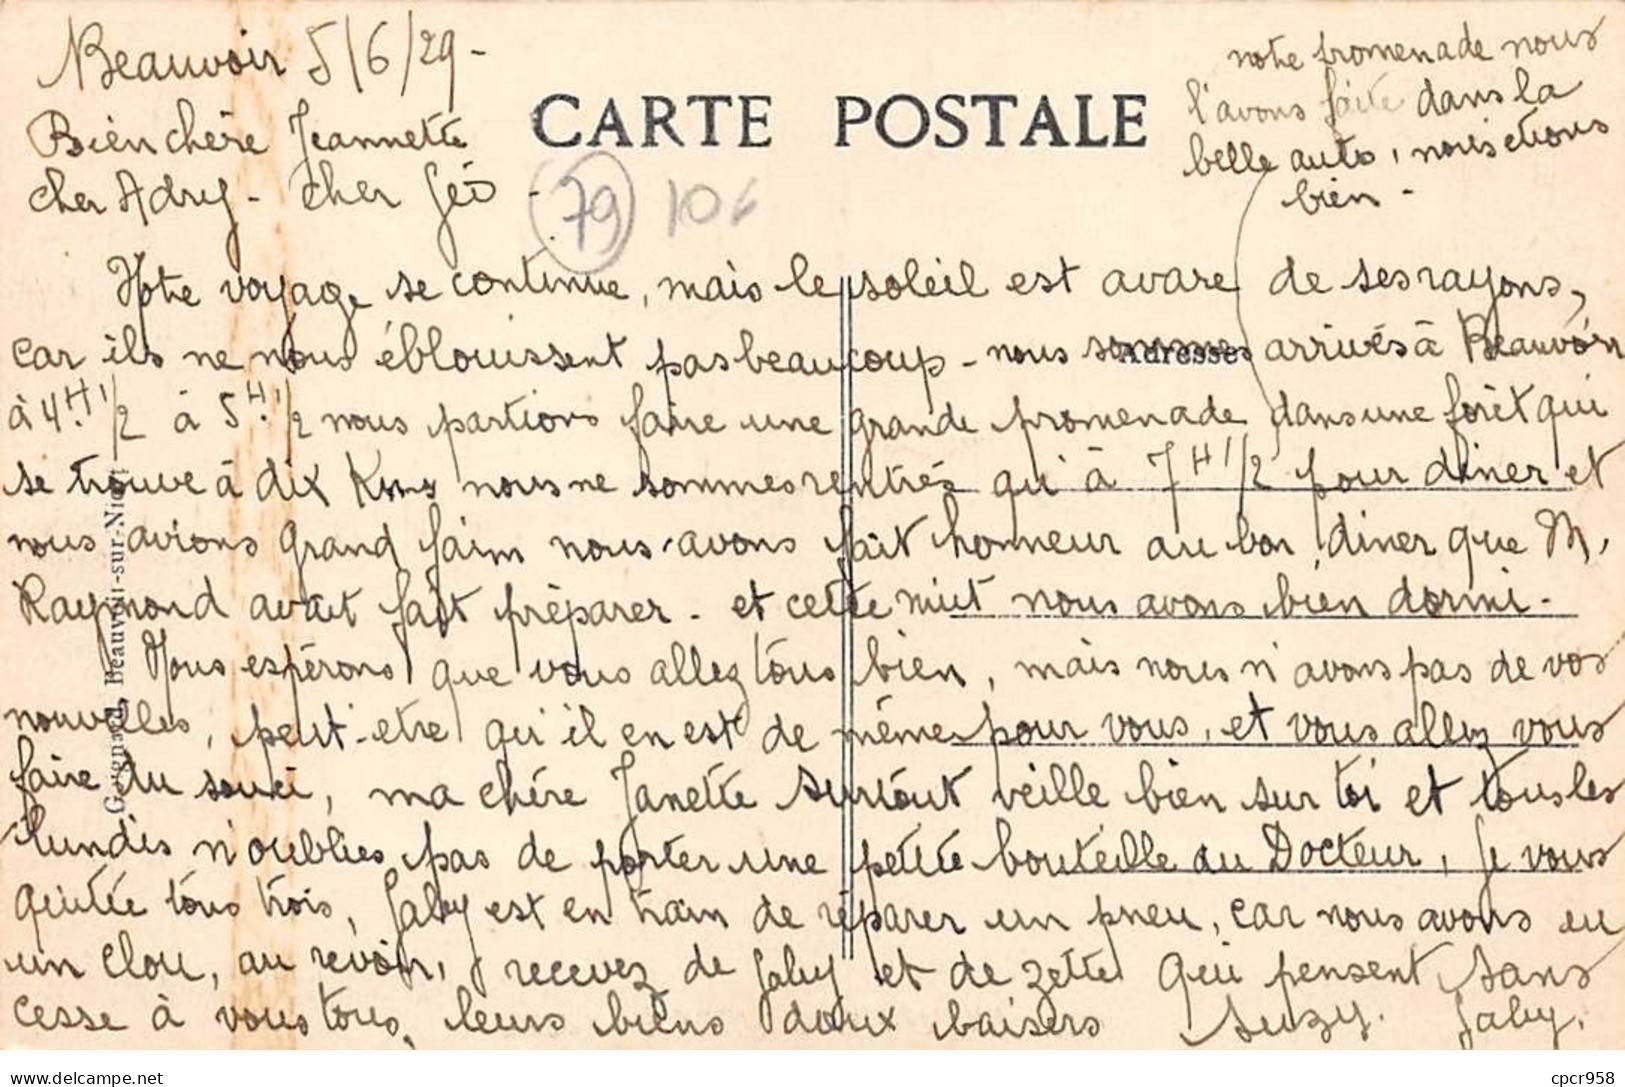 Beauvoir 5/6/29 -
Bien chère Jeannette
cher Adry - cher Géo -
CARTE POSTALE
79 106
notre promenade nous
l'avons faite dans la
belle auto, nous étions
bien -
Notre voyage se continue, mais le soleil est avare de ses rayons,
car ils ne nous éblouissent pas beaucoup - nous sommes arrivés à Beauvoir
Adresse
à 4H.1/2 à 5H.1/2 nous partions faire une grande promenade dans une forêt qui
se trouve à dix Kms nous ne sommes rentrés qu'à 7H1/2 pour diner et
nous avions grand faim nous avons fait honneur au bon diner que M.
Raymond avait fait préparer - et cette nuit nous avons bien dormi -
Nous espérons que vous allez tous bien, mais nous n'avons pas de vos
nouvelles, peut-etre qu'il en est de même pour vous, et vous allez vous
faire du souci, ma chère Janette surtout veille bien sur toi et tous les
lundis n'oublies pas de porter une petite bouteille au Docteur, je vous
quitte tous trois, Gaby est en train de réparer un pneu, car nous avons eu
un clou, au revoir, recevez de Gaby et de Zette qui pensent sans
cesse à vous tous, leurs biens doux baisers Suzy. Gaby.
Beauvoir-sur-Niort
cpcr958